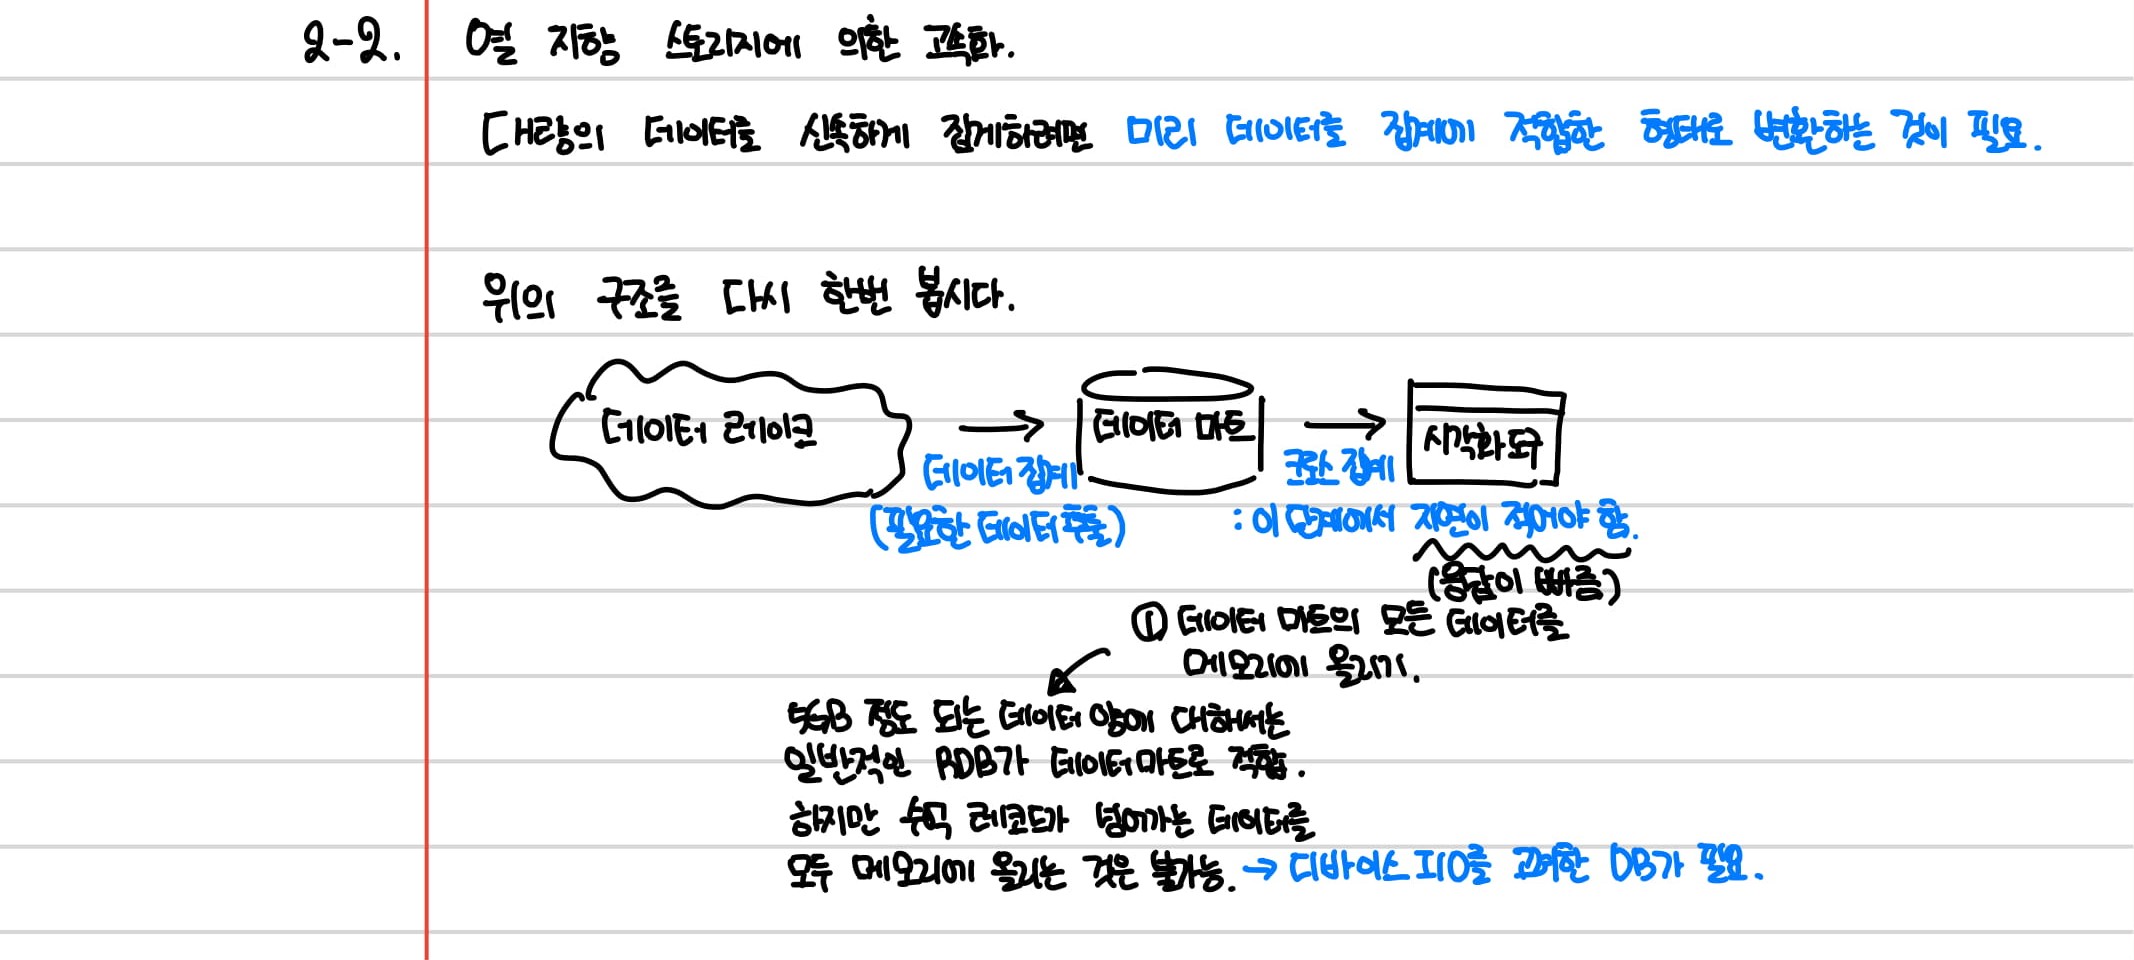 2-2. 열 지향 스토리지에 의한 고속화.
대량의 데이터를 신속하게 집계하려면 미리 데이터를 집계에 적합한 형태로 변환하는 것이 필요.
위의 구조를 다시 한번 봅시다.
데이터 레이크 → 데이터 마트 → 시각화 도구
데이터 집계 크로스 집계
(필요한 데이터 추출) : 이 단계에서 지연이 적어야 함.
(응답이 빠름)
① 데이터 마트의 모든 데이터를
메모리에 올리기.
5GB 정도 되는 데이터 양에 대해서는
일반적인 RDB가 데이터 마트로 적합.
하지만 수억 레코드가 넘어가는 데이터를
모두 메모리에 올리는 것은 불가능. → 디바이스 I/O를 고려한 DB가 필요.